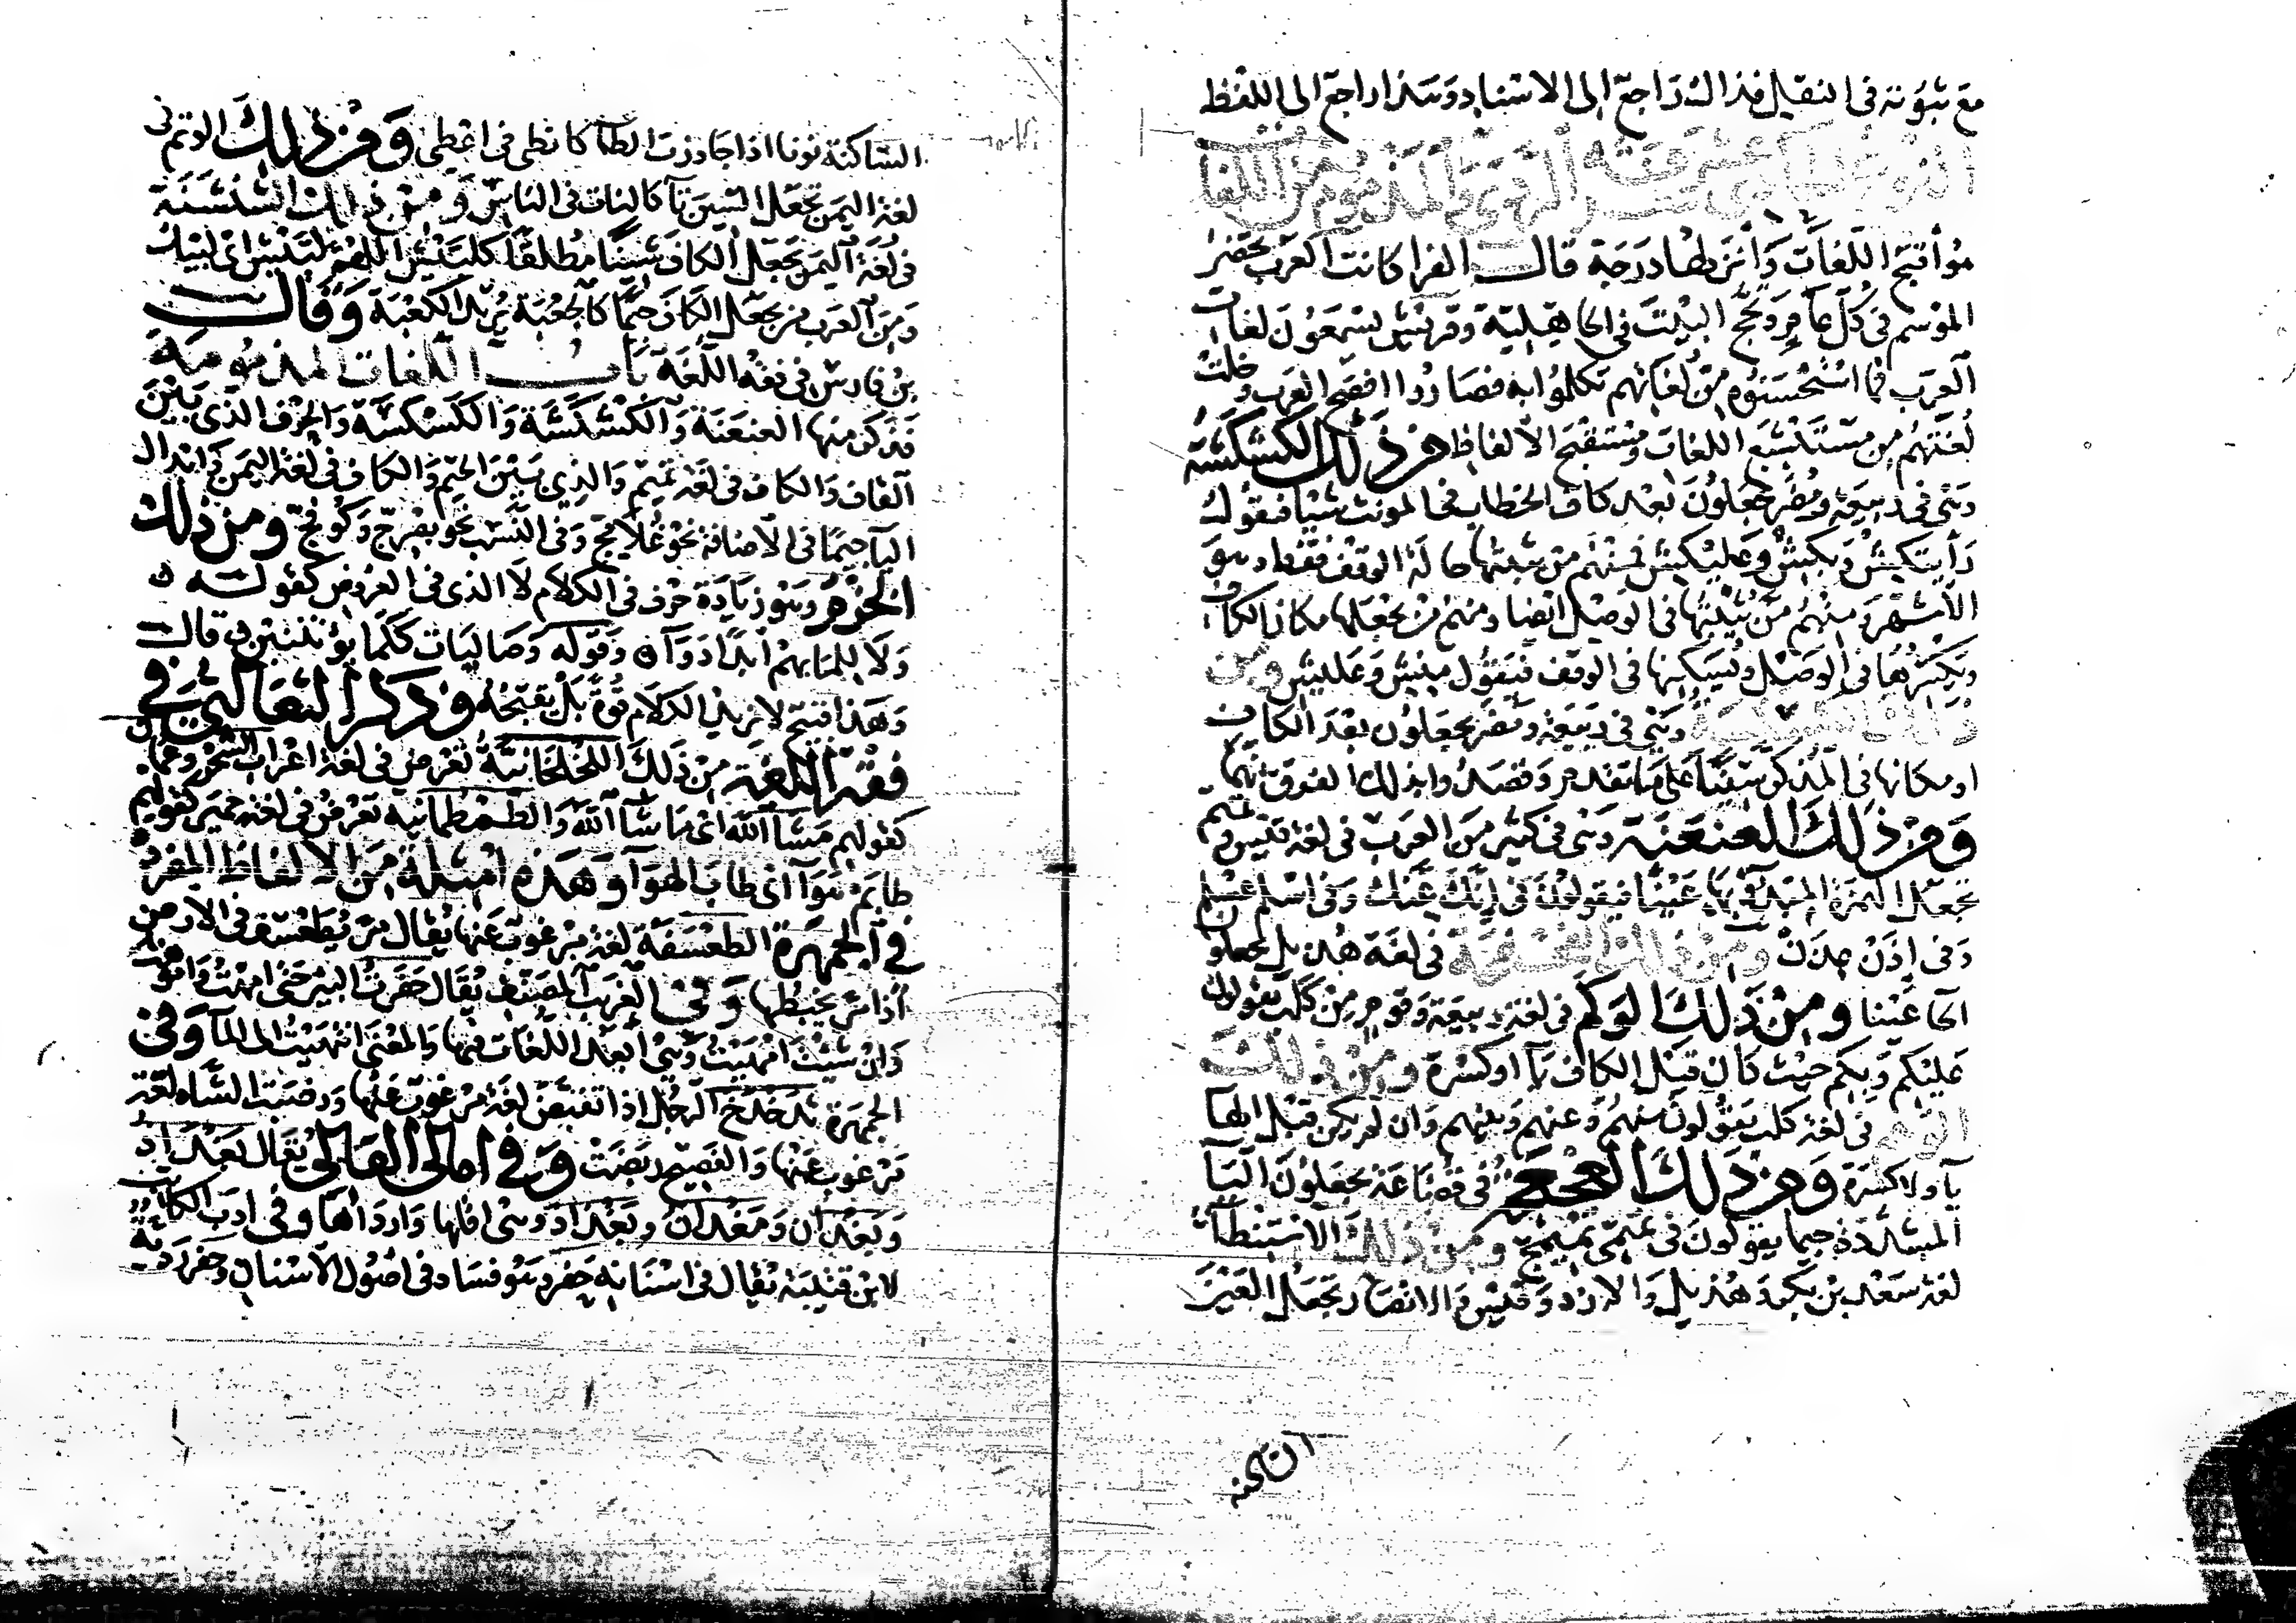 مع ثبوته في النقل فذاك راجع إلى الاسناد وهذا راجع إلى اللفظ
النوع الحادي عشر معرفة الردي والمذموم من اللغات
هو أقبح اللغات وأنزلها درجة قال الفرا كانت العرب تحضر
الموسم في كل عام وتحج البيت في الجاهلية وقريش يسمعون لغات
العرب فما استحسنوه من لغاتهم تكلموا به فصاروا افصح العرب وخلت
لغتهم من مستبشع اللغات ومستقبح الألفاظ من ذلك الكشكشة
وهي في ربيعة ومضر يجعلون بعد كاف الخطاب في المونث شينا فيقولون
رأيتكش وبكش وعليكش فمنهم من يثبتها حالة الوقف فقط وهو
الأشهر ومنهم من يثبتها في الوصل ايضا ومنهم من يجعلها مكان الكاف
ويكسرها في الوصل ويسكنها في الوقف فيقول منش وعليش ومن
ذلك الكسكسة وهي في ربيعة ومضر يجعلون بعد الكاف
او مكانها في المذكر سينا على ما تقدم وقصدوا بذلك الفرق بينهما
ومن ذلك العنعنة وهي في كثير من العرب في لغة قيس وتميم
تجعل الهمزة المبدوء بها عينا فيقولون في إنك عنك وفي اسلم عسلم
وفي إذن عذن ومن ذلك الفحفحة في لغة هذيل يجعلون
الحا عينا ومن ذلك الوكم في لغة ربيعة وقوم من كلب يقولون
عليكم وبكم حيث كان قبل الكاف يآ او كسرة ومن ذلك
الوهم في لغة كلب يقولون منهم وعنهم وبينهم وان لم يكن قبل الها
يآ ولا كسرة ومن ذلك العجعجة في قضاعة يجعلون اليا
المشددة جيما يقولون في تميمي تميمج ومن ذلك الاستنطآ
لغة سعد بن بكر وهذيل والازد وقيس والانصار تجعل العين
الساكنة
الساكنة نونا اذا جاورت الطآ كانطى في اعطى ومن ذلك الوتم في
لغة اليمن تجعل السين تآ كالنات في الناس ومن ذلك الشنشنة
في لغة اليمن تجعل الكاف شينا مطلقا كلبيش اللهم لبيش اى لبيك
ومن العرب من يجعل الكاف جيما كالجعبة يريد الكعبة وقال
بن فارس في فقه اللغة باب اللغات المذمومة
فذكر منها العنعنة والكشكشة والكسكسة والحرف الذي بين
القاف والكاف في لغة تميم والذي بين الجيم والكاف في لغة اليمن وابدال
اليا جيما في الاضافة نحو غلامج وفي النسب نحو بصرج وكوفج ومن ذلك
الخزم وهو زيادة حرف في الكلام لا الذي في العروض كقوله
ولا للما بهم أبدا دوآ وقوله وصاليات ككما يؤثفين قال
وهذا قبيح لا يزيد الكلام قوة بل يقبحه وذكر الثعالبي في
فقه اللغة من ذلك اللخلخانية تعرض في لغة اعراب الشحر وعمان
كقولهم مشآ الله اى ما شآ الله والطمطمانية تعرض في لغة حمير كقولهم
طاب مهوآ اى طاب الهوآ وهذه امثلة من الالفاظ المفردة
في الجمهرة الطعسفة لغة مرغوب عنها يقال مر يطعسف في الارض
اذا مر يخبطها وفي الغريب المصنف يقال حفرت البير حتى امهت واموهت
وان شيت امهيت وهي أبعد اللغات فيها والمعنى انتهيت الى المآ وفي
الجمهرة تدخدخ الرجل اذا تقبض لغة مرغوب عنها ورضبت الشاه لغة
مرغوب عنها والفصيح ربضت وفي امالي القالي يقال بغداد
وبغدان ومغدان وبغداذ وهي اقلها وارداها وفي ادب الكاتب
لابن قتيبة يقال في اسنانه حفر وهو فساد في اصول الاسنان وحفر ردية